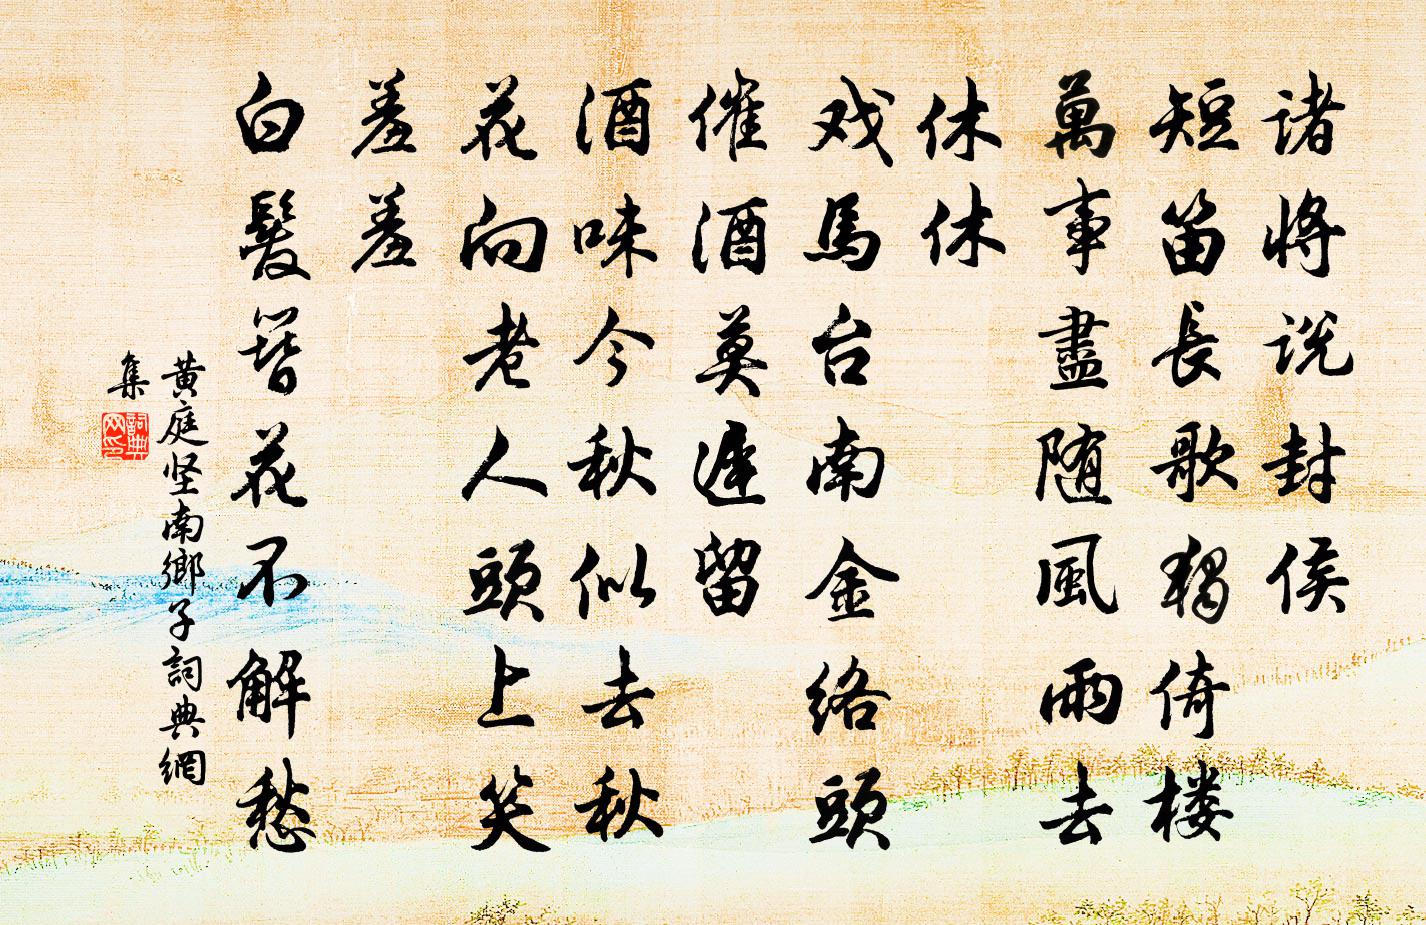 诸將说封侯
短笛長歌獨倚楼
萬事盡随風雨去
休休
戏馬台南金络頭
催酒莫遲留
酒味今秋似去秋
花向老人頭上笑
羞羞
白髮簪花不解愁
黄庭坚南鄉子詞典網
集
詞典
网印